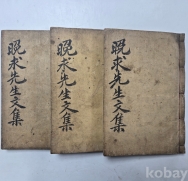 晩求先生文集
晩求先生文集
晩求先生文集
kobay